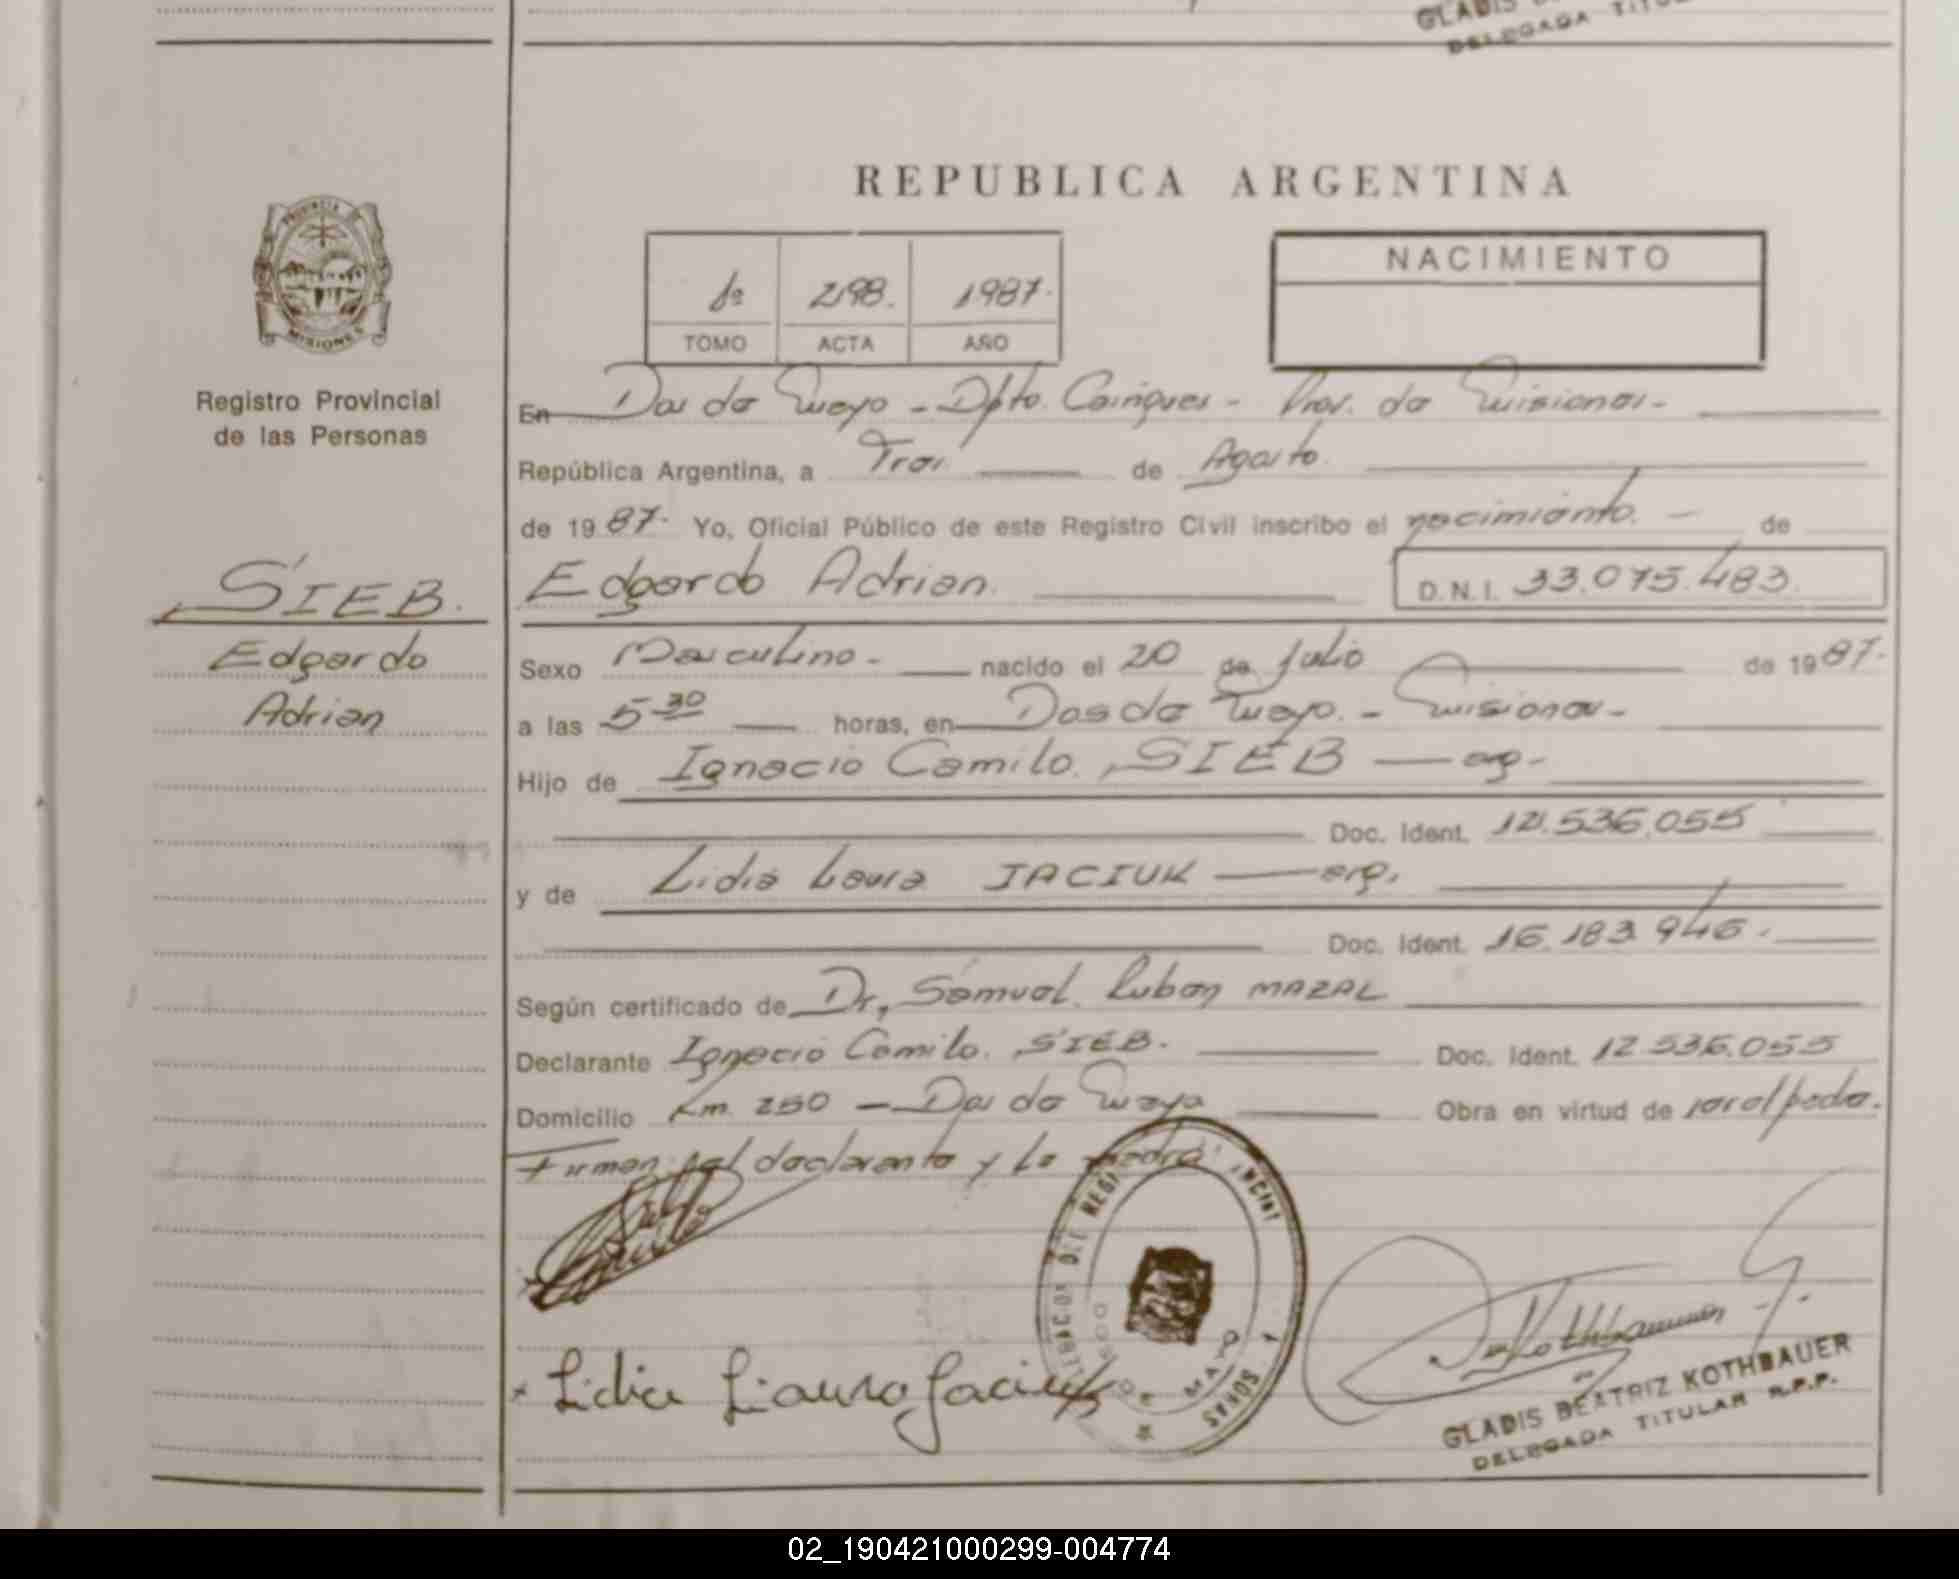 GLADIS
DELEGADA TITU
REPUBLICA ARGENTINA
PROVINCIA DE
MISIONES
Registro Provincial
de las Personas
1º 298. 1987.
TOMO ACTA AÑO
NACIMIENTO
En Dos de Mayo - Dpto. Cainguas - Prov. de Misiones.-
República Argentina, a Tres de Agosto.
de 1987. Yo, Oficial Público de este Registro Civil inscribo el nacimiento. - de
SIEB.
Edgardo
Adrian
Edgardo Adrian. D.N.I. 33.075.483.
Sexo Masculino.- nacido el 20 de Julio de 1987.
a las 5 30 horas, en Dos de Mayo. - Misiones-
Hijo de Ignacio Camilo. SIEB — arg.-
Doc. Ident. 12.536.055
y de Lidia Laura JACIUK — arg.
Doc. Ident. 16.183.946.
Según certificado de Dr, Samuel. Ruben MAZAL
Declarante Ignacio Camilo. SIEB. Doc. Ident. 12.536.055
Domicilio Km. 250 — Dos de Mayo Obra en virtud de ser el padre.
Firman el declarante y la madre
DOS DE MAYO
Lidia Laura Jaciuk
GLADIS BEATRIZ KOTHBAUER
DELEGADA TITULAR R.P.P.
02_190421000299-004774